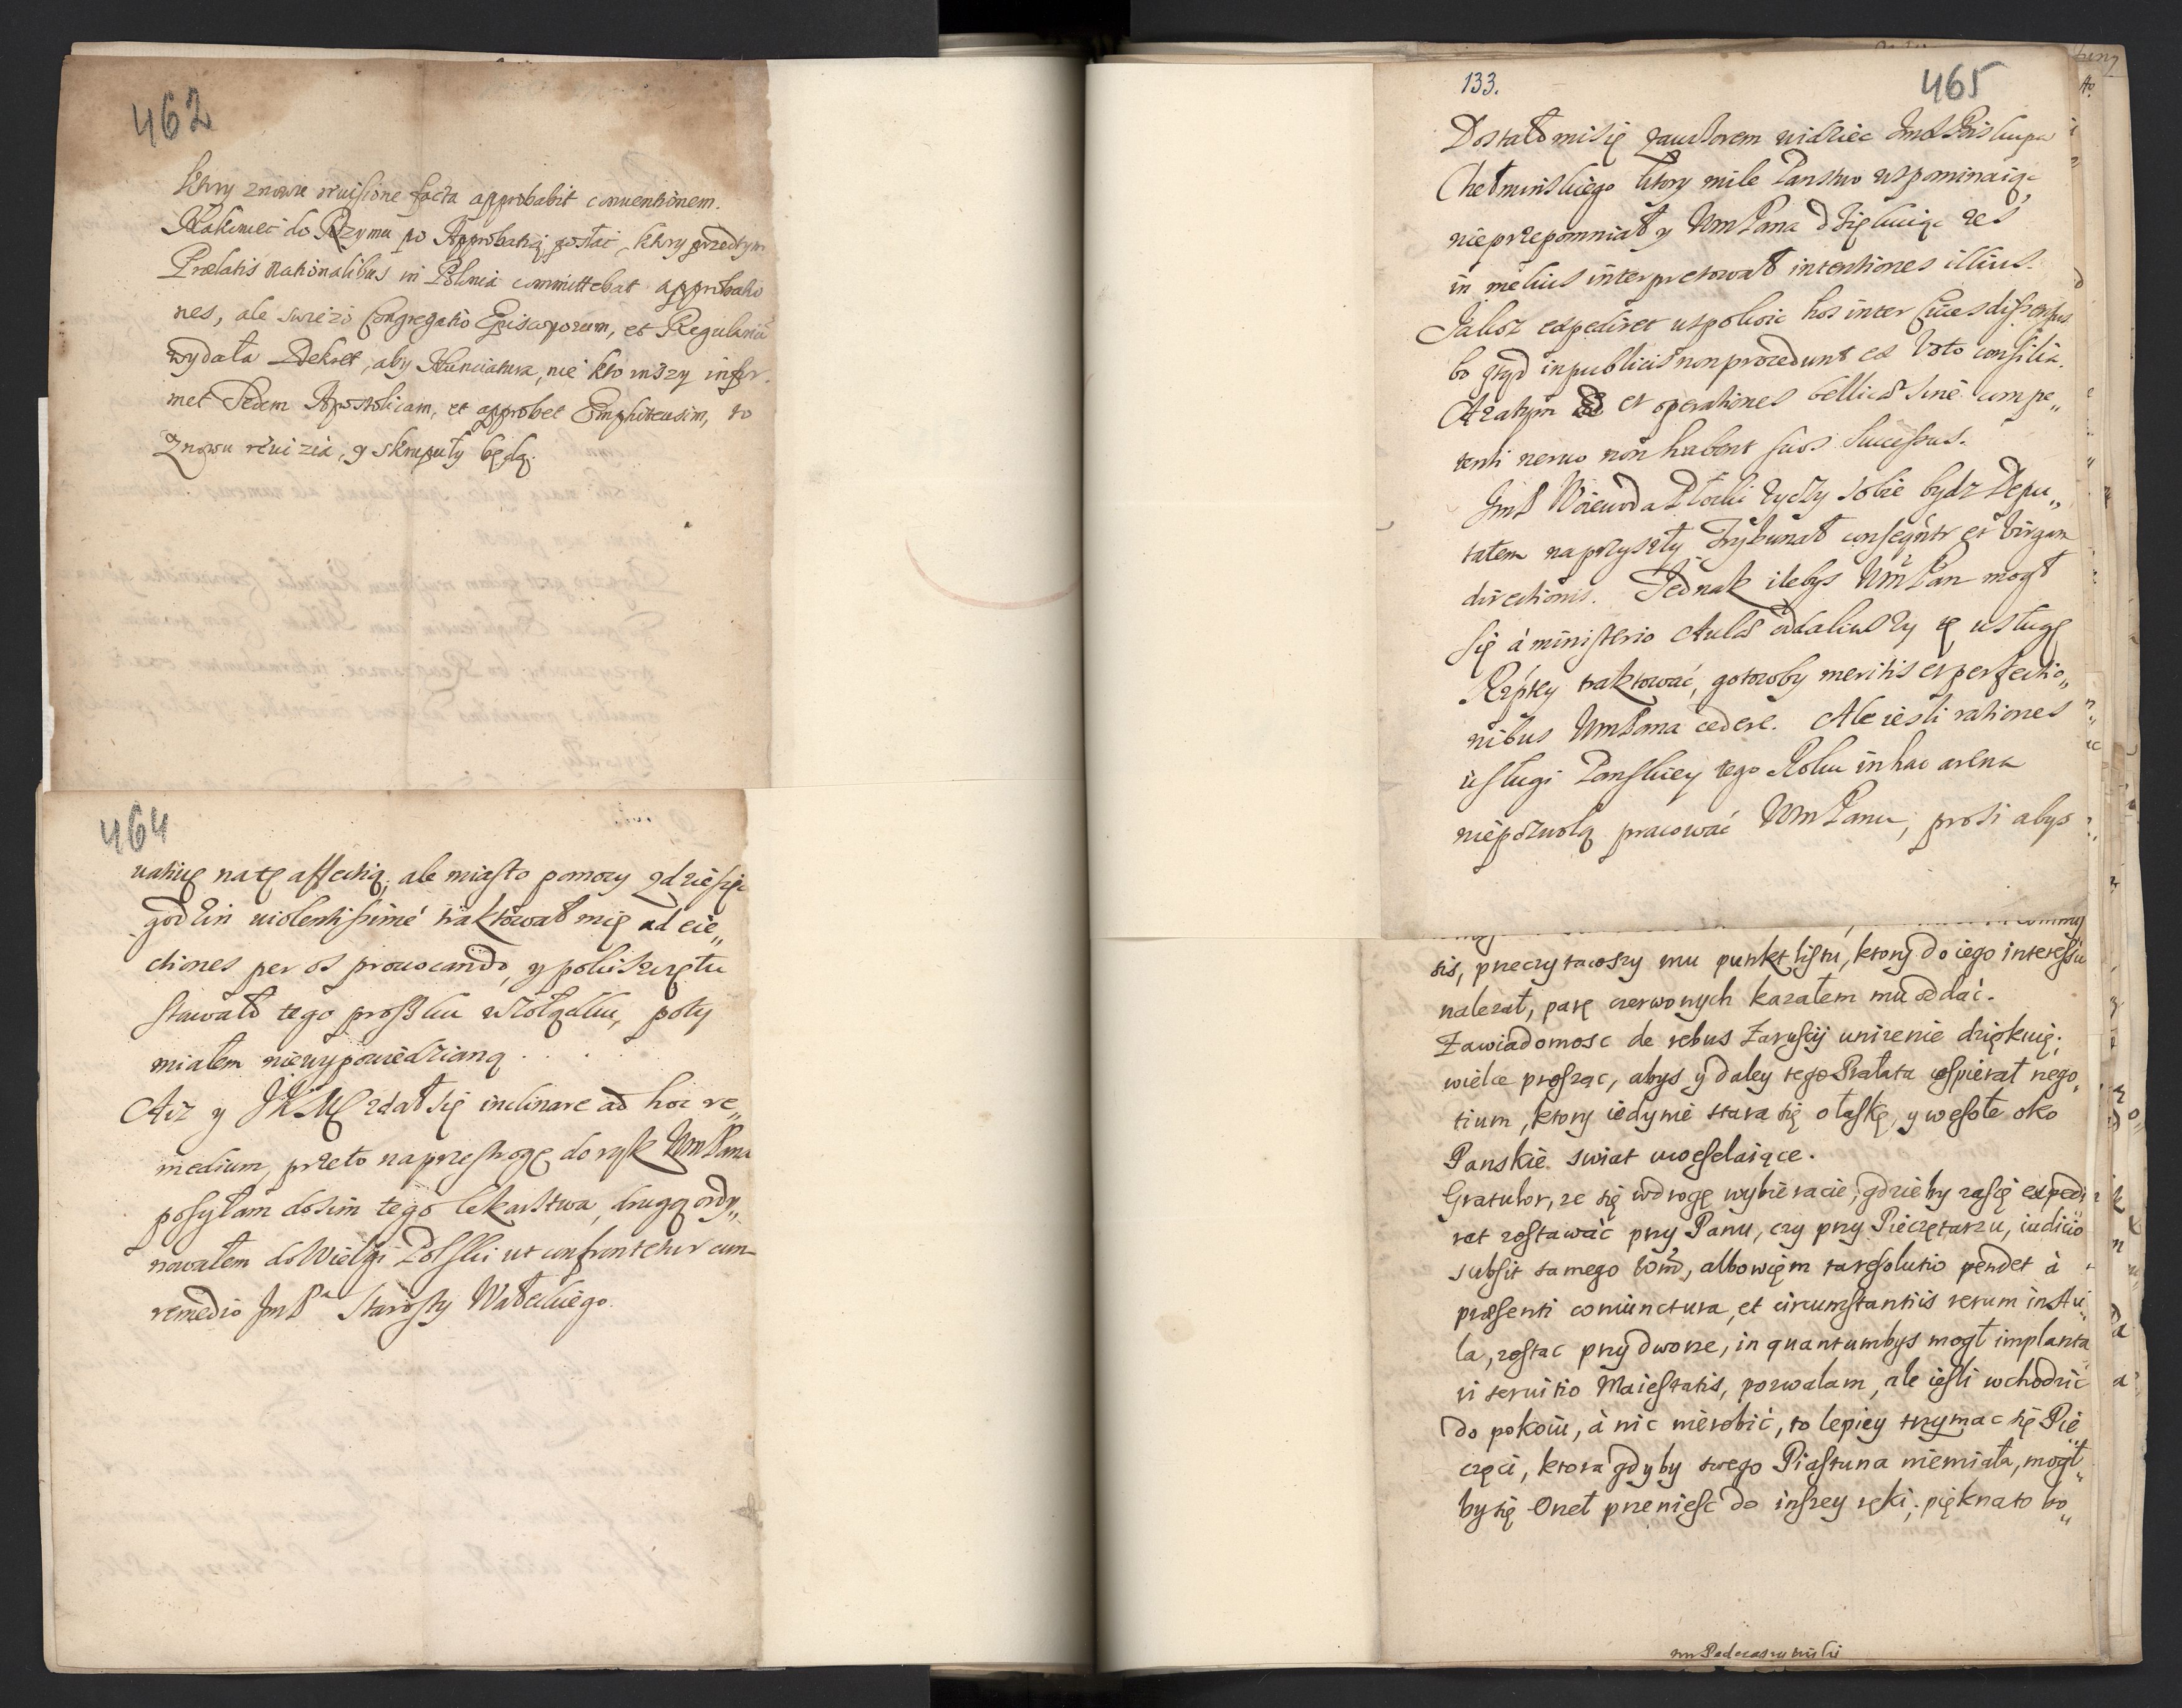 462
ktory znowu reuisione facta approbabit conuentionem.
Nakoniec do Rzymu po Approbatią posłać, ktory przedtym
Prælatis Nationalibus in Polonia committebat approbatio
nes, ale swiezo Congregatio Episcoporum, et Regularium
wydała Dekret, aby Nunciatura, nie kto inszy infor
met Sedem Apostolicam, et approbet Emphiteusim, to
Znowu reuizia, y skrupuły będą.
464
uatiuę na tę affectią; ale miasto pomocy
godzin violentissimé traktował mię ad eie„
ctiones per os prouocando, y poki
stawało tego proszku w żołądku, poty
miałem niewypowiedzianą . . . .
Aiz y JKM zdał się inclinare ad hoc re„
medium, przeto na przestrogę do rąk WmPana
posyłam dosim tego lekarstwa, drugą ordy„
nowałem do Wielgi Polski ut confrontetur cum
remedio JmP^a Starosty Wałeckiego.
133.
465
Dostało mi się zawzorem widziec JmX Biskupa
Chełminskiego ktory mile Panstwo wspominaiąc
nieprzepomniał y WmPana dziękuiąc zes
in melius interpretował intentiones illius.
Jakoz expediret uspokoic hos inter Ciues dissensus
bo ztąd in publicis non procedunt ex Voto consilia.
Azatym et operationes bellicæ sine compe„
tenti neruo non habent suos Successus.
JmP Woiewoda Płocki zyczy sobie bydz Depu„
tatem na przyszły Trybunał conseqntr et Virgam
directionis. Jednak ilebys WmPan mogł
się á ministerio Aulæ oddaliwszy tę usługę
Rzptey traktować, gotowby meritis et perfectio„
nibus WmPana cedere. Ale iesli rationes
usługi Panskiey tego Roku in hac arena
niepozwolą pracować WmPanu, prosi abys
tis, przeczytawszy mu punkt listu, ktory do iego interessu
nalezał, parę czerwonych kazałem mu oddać.
Za wiadomosc de rebus Zaruscij unizenie dziękuię;
wielce prosząc, abys y daley tego Prałata wspierał nego„
tium, ktory iedynie stara się o łaskę, y wesołe oko
Panskie swiat uweselaiące.
Gratulor, ze się w drogę wybieracie, gdzieby zasię expedi
ret zostawać przy Panu, czy przy Pieczętarzu, iudicio
subsit samego Wm̃, albowięm ta resolutio pendet à
præsenti coniunctura, et circumstantiis rerum in Au„
la, zostac przy dworze, in quantumbys mogł implanta„
ri seruitio Maiestatis, pozwalam, ale iesli wchodzić
do pokoiu, à nic nierobić, to lepiey trzymac się Pie
częci, ktora gdyby swego Piastuna niemiała, mogł„
by się Onet przeniesc do inszey ręki; piękna to bo„